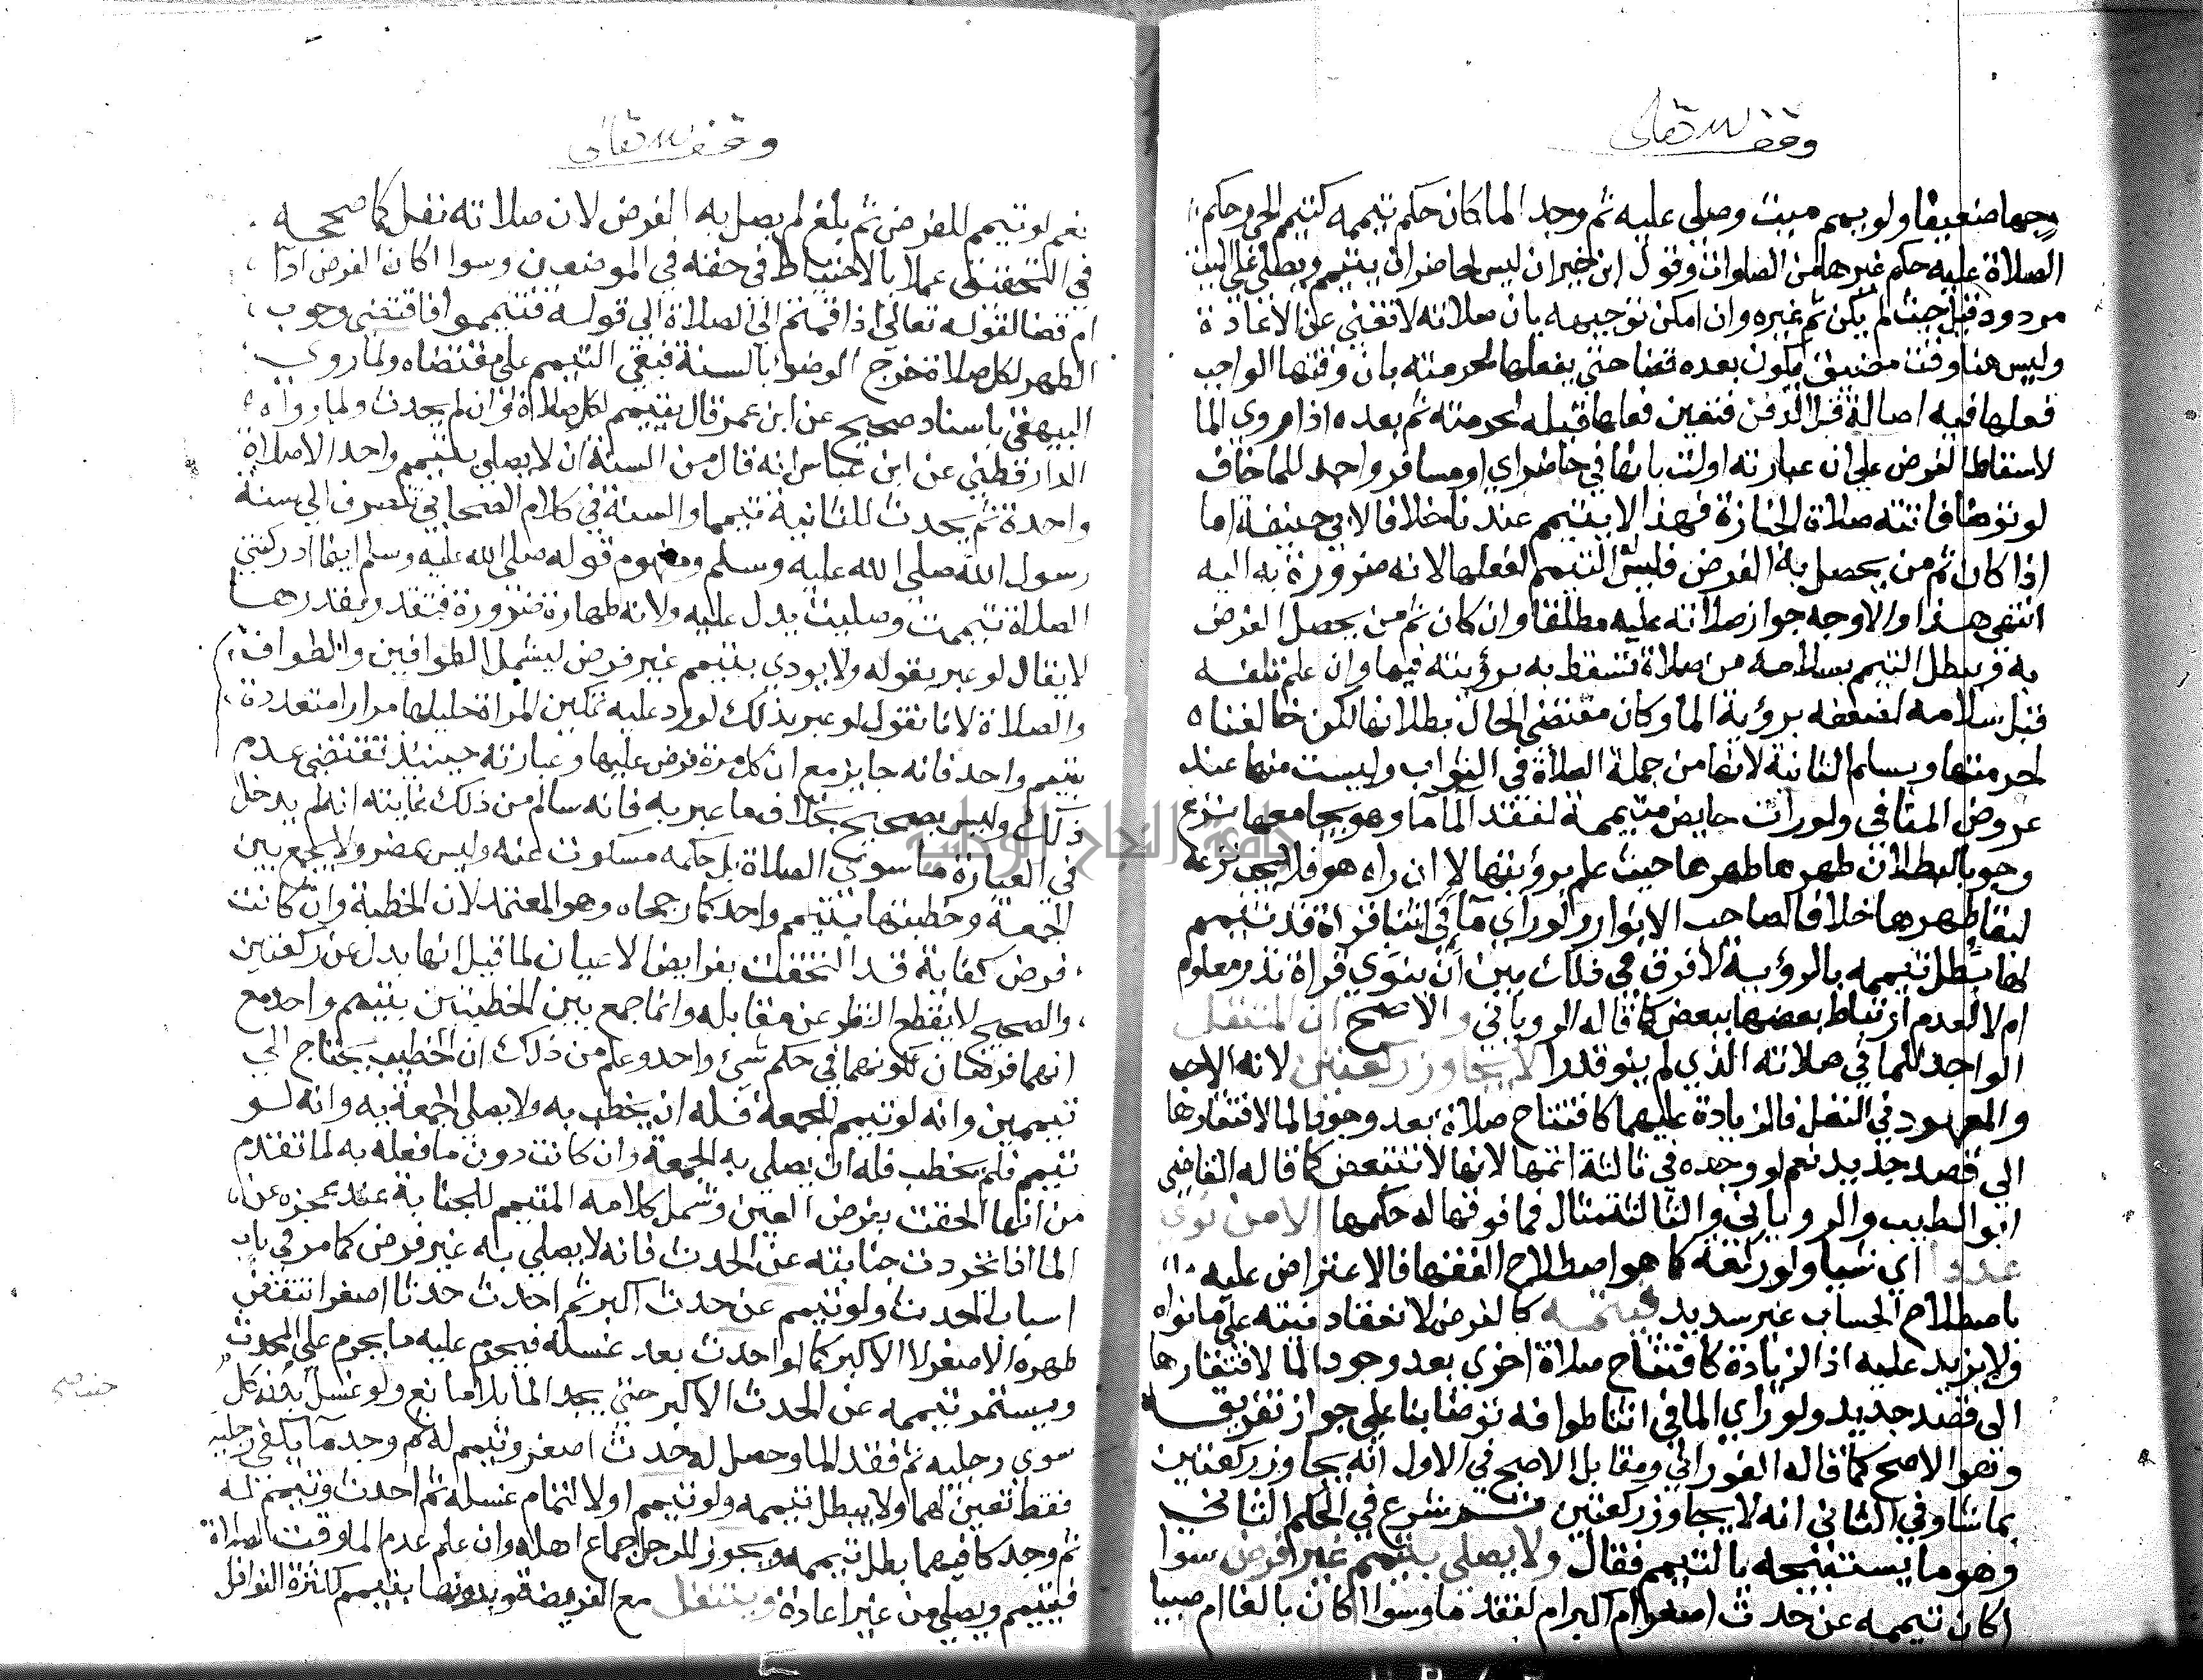 وقف لله تعالى
وجها ضعيفا ولو يمم ميت وصلى عليه ثم وجد الما كان حكم تيممه كتيمم الحى وحكم
الصلاة عليه حكم غيرها من الصلوات وقول ابن خيران ليس لحاضر ان يتيمم ويصلى على الميت
مردود قيل حيث لم يكن ثم غيره وان امكن توجيهه بان صلاته لا تغني عن الاعادة
وليس هنا وقت مضيق يكون بعده قضا حتى يفعلها لحرمته بان وقتها الواجب
فعلها فيه اصالة قبل الدفن فتعين فعلها قبله لحرمته ثم بعده اذا روي الما
لاسقاط الفرض على ان عبارته اولت بانها في حاضر اي او مسافر واجد للما خاف
لو توضا فاتته صلاة الجنازة فهذا لا يتيمم عندنا خلافا لابي حنيفة اما
اذا كان ثم من يحصل به الفرض فليس له التيمم لفعلها لانه ضرورة به اليه
انتهى هذا والاوجه جواز صلاته عليه مطلقا وان كان ثم من يحصل الفرض
به ويبطل التيمم بسلامه من صلاة تسقط به برؤيته فيها وان علم تلفه
قبل سلامه لضعفه برؤية الما وكان مقتضى الحال بطلانها لكن خالفناه
لحرمتها ويسلم الثانية لانها من جملة الصلاة في الثواب وليست منها عند
عروض المنافي ولو رات حايض متيممة لفقد الما ما وهو يجامعها نزع
وجوبا لبطلان طهرها حيث علم برؤيتها لا ان راه هو فلا يجب نزعه
لبقا طهرها خلافا لصاحب الانوار ولو راي ما في اثنا قراة قد تيمم
لها بطل تيممه بالرؤية لا فرق في ذلك بين ان ينوي قراة قدر معلوم
ام لا لعدم ارتباط بعضها ببعض كما قاله الروياني والاصح ان المتنفل
الواجد للما في صلاته الذي لم ينو قدرا لا يجاوز ركعتين لانه الاحب
والمعهود في النفل فالزيادة عليهما كافتتاح صلاة بعد وجود الما لافتقارها
الى قصد جديد نعم لو وجده في ثالثة اتمها لانها لا تتبعض كما قاله القاضي
ابو الطيب والروياني والثالثة مثال فما فوقها له حكمها الا من نوى
عددا اي شيا ولو ركعة كما هو اصطلاح الفقها فالاعتراض عليه
باصطلاح الحساب غير سديد فيتمه كالفرض لانعقاد نيته على ما نواه
ولا يزيد عليه اذ الزيادة كافتتاح صلاة اخرى بعد وجود الما لافتقارها
الى قصد جديد ولو راي الما في اثنا طوافه توضا بنا على جواز تفريقه
وهو الاصح كما قاله الفوراني ومقابل الاصح في الاول انه يجاوز ركعتين
بما شا وفي الثاني انه لا يجاوز ركعتين ثم شرع في الحكم الثاني
وهو ما يستبيحه بالتيمم فقال ولا يصلي بتيمم غير فرض سوا
اكان تيممه عن حدث اصغر ام اكبر ام لفقد ما وسوا اكان بالغا ام صبيا
وقف لله تعالى
نعم لو تيمم للفرض ثم بلغ لم يصل به الفرض لان صلاته نفل كما صححه
في التحقيق عملا بالاحتياط في حقه في الموضعين وسوا اكان الفرض ادآ
ام قضا لقوله تعالى اذا قمتم الى الصلاة الى قوله فتيمموا فاقتضى وجوب
الطهر لكل صلاة خرج الوضوء بالسنة فبقي التيمم على مقتضاه ولما روى
البيهقي باسناد صحيح عن ابن عمر قال يتيمم لكل صلاة وان لم يحدث ولما رواه
الدارقطني عن ابن عباس انه قال من السنة ان لا يصلي بتيمم واحد الا صلاة
واحدة ثم يحدث للثانية تيمما والسنة في كلام الصحابي تنصرف الى سنة
رسول الله صلى الله عليه وسلم ومفهوم قوله صلى الله عليه وسلم اينما ادركتني
الصلاة تيممت وصليت يدل عليه ولانه طهارة ضرورة فتقدر بقدرها
لا يقال لو عبر بقوله ولا يودي بتيمم غير فرض ليشمل الطوافين والطواف
والصلاة لانا نقول لو عبر بذلك لورد عليه تمكين المراة حليلها مرارا متعددة
بتيمم واحد فانه جايز مع ان كل مرة فرض عليها وعبارته حينئذ تقتضى عدم
ذلك وليس بصحيح بخلاف ما عبر به فانه سالم من ذلك غايته انه لم يدخل
في العبارة ما سوى الصلاة بل حكمه مسكوت عنه وليس بمضر ولا يجمع بين
الجمعة وخطبتها بتيمم واحد كما رجحاه وهو المعتمد لان الخطبة وان كانت
فرض كفاية قد التحقت بفرايض الاعيان لما قيل انها بدل عن ركعتين
والصحيح لا يقطع النظر عن مقابله وانما جمع بين الخطبتين بتيمم واحد مع
انهما فرضان لكونهما في حكم شئ واحد وعلم من ذلك ان الخطيب يحتاج الى
تيممين وانه لو تيمم للجمعة فله ان يخطب به ولا يصلى الجمعة به وانه لو
تيمم فلم يخطب فله ان يصلي به الجمعة وان كانت دون ما فعله به لما تقدم
من انها الحقت بفرض العين وشمل كلامه المتيمم للجنابة عند عجزه عن
الما اذا تجردت جنابته عن الحدث فانه لا يصلي به غير فرض كما مر في باب
اسباب الحدث ولو تيمم عن حدث اكبر ثم احدث حدثا اصغر انتقض
طهره الاصغر لا الاكبر كما لو احدث بعد غسله فيحرم عليه ما يحرم على المحدث
ويستمر تيممه عن الحدث الاكبر حتى يجد الما بلا مانع ولو غسل بدنه كله
سوى رجليه ثم فقد الما وحصل له حدث اصغر وتيمم له ثم وجد ما يكفي رجليه
فقط تعين لهما ولا يبطل تيممه ولو تيمم اولا لتمام غسله ثم احدث وتيمم له
ثم وجد كافيهما بطل تيممه ويجوز للرجل جماع اهله وان علم عدم الما وقت الصلاة
فيتيمم ويصلي من غير اعادة ويتنفل مع الفريضة وبدونها بتيمم كثرة النوافل